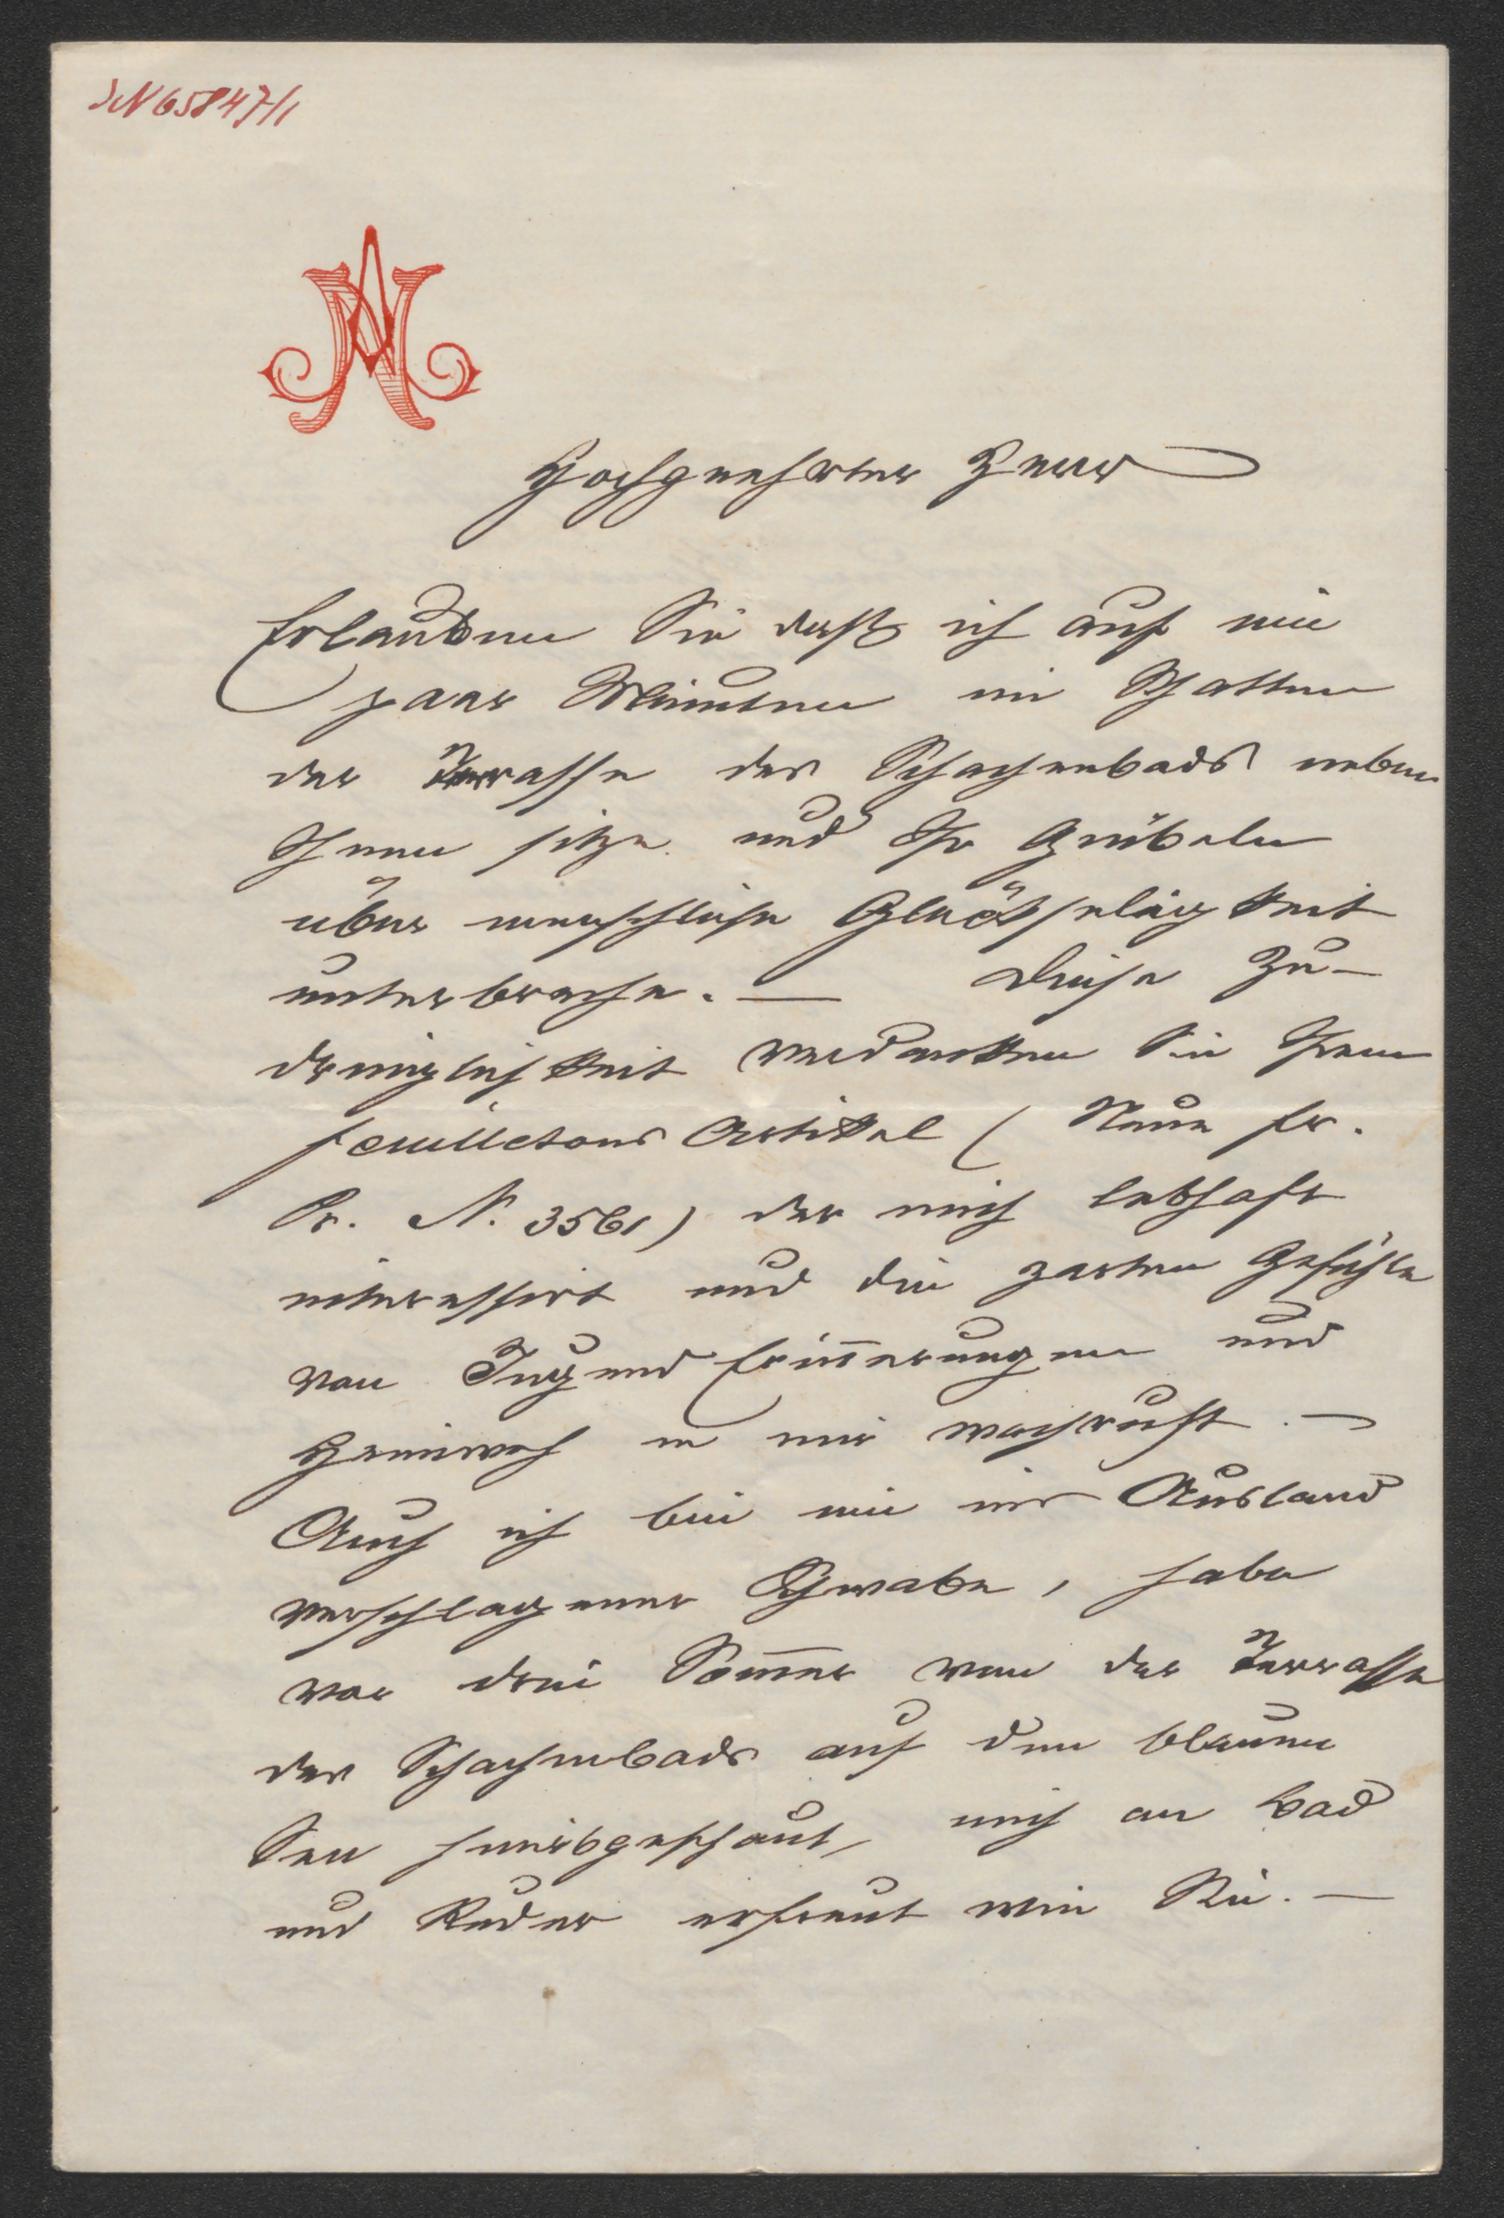 JN 65847/1
Hochgeehrter Herr
Erlauben Sie daß ich auf ein
paar Minuten im Schatten
der Terrasse des Schachenbads neben
Ihnen sitze und Ihr Grübeln
über menschliche Glückseligkeit
unterbreche. — Diese Zu-
dringlichkeit verdanken Sie Ihrem
feuilletons Artikel (Neue fr.
Pr. N. 3561) der mich lebhaft
interessirt und die zarten Gefühle
von Jugend Erin̄erungen und
Heimweh in mir wachruft. —
Auch ich bin ein ins Ausland
verschlagener Schwabe, habe
vor drei Som̄er von der Terrasse
des Schachenbads auf den blauen
See herabgeschaut, mich an Bad
und Ruder erfreut wie Sie. —